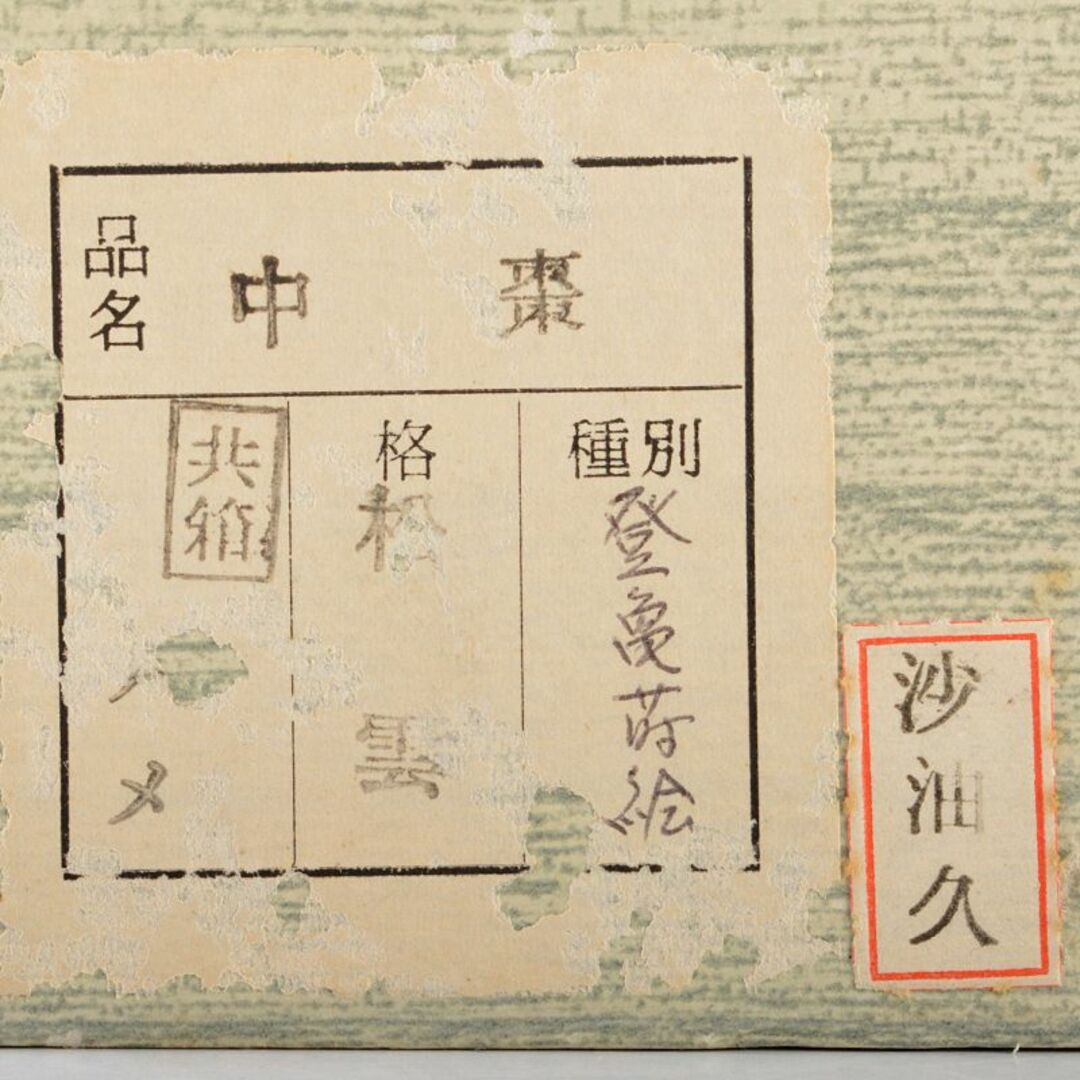 品名 中 棗
種別
登亀蒔絵
格
松雲
共箱
メ
沙油久